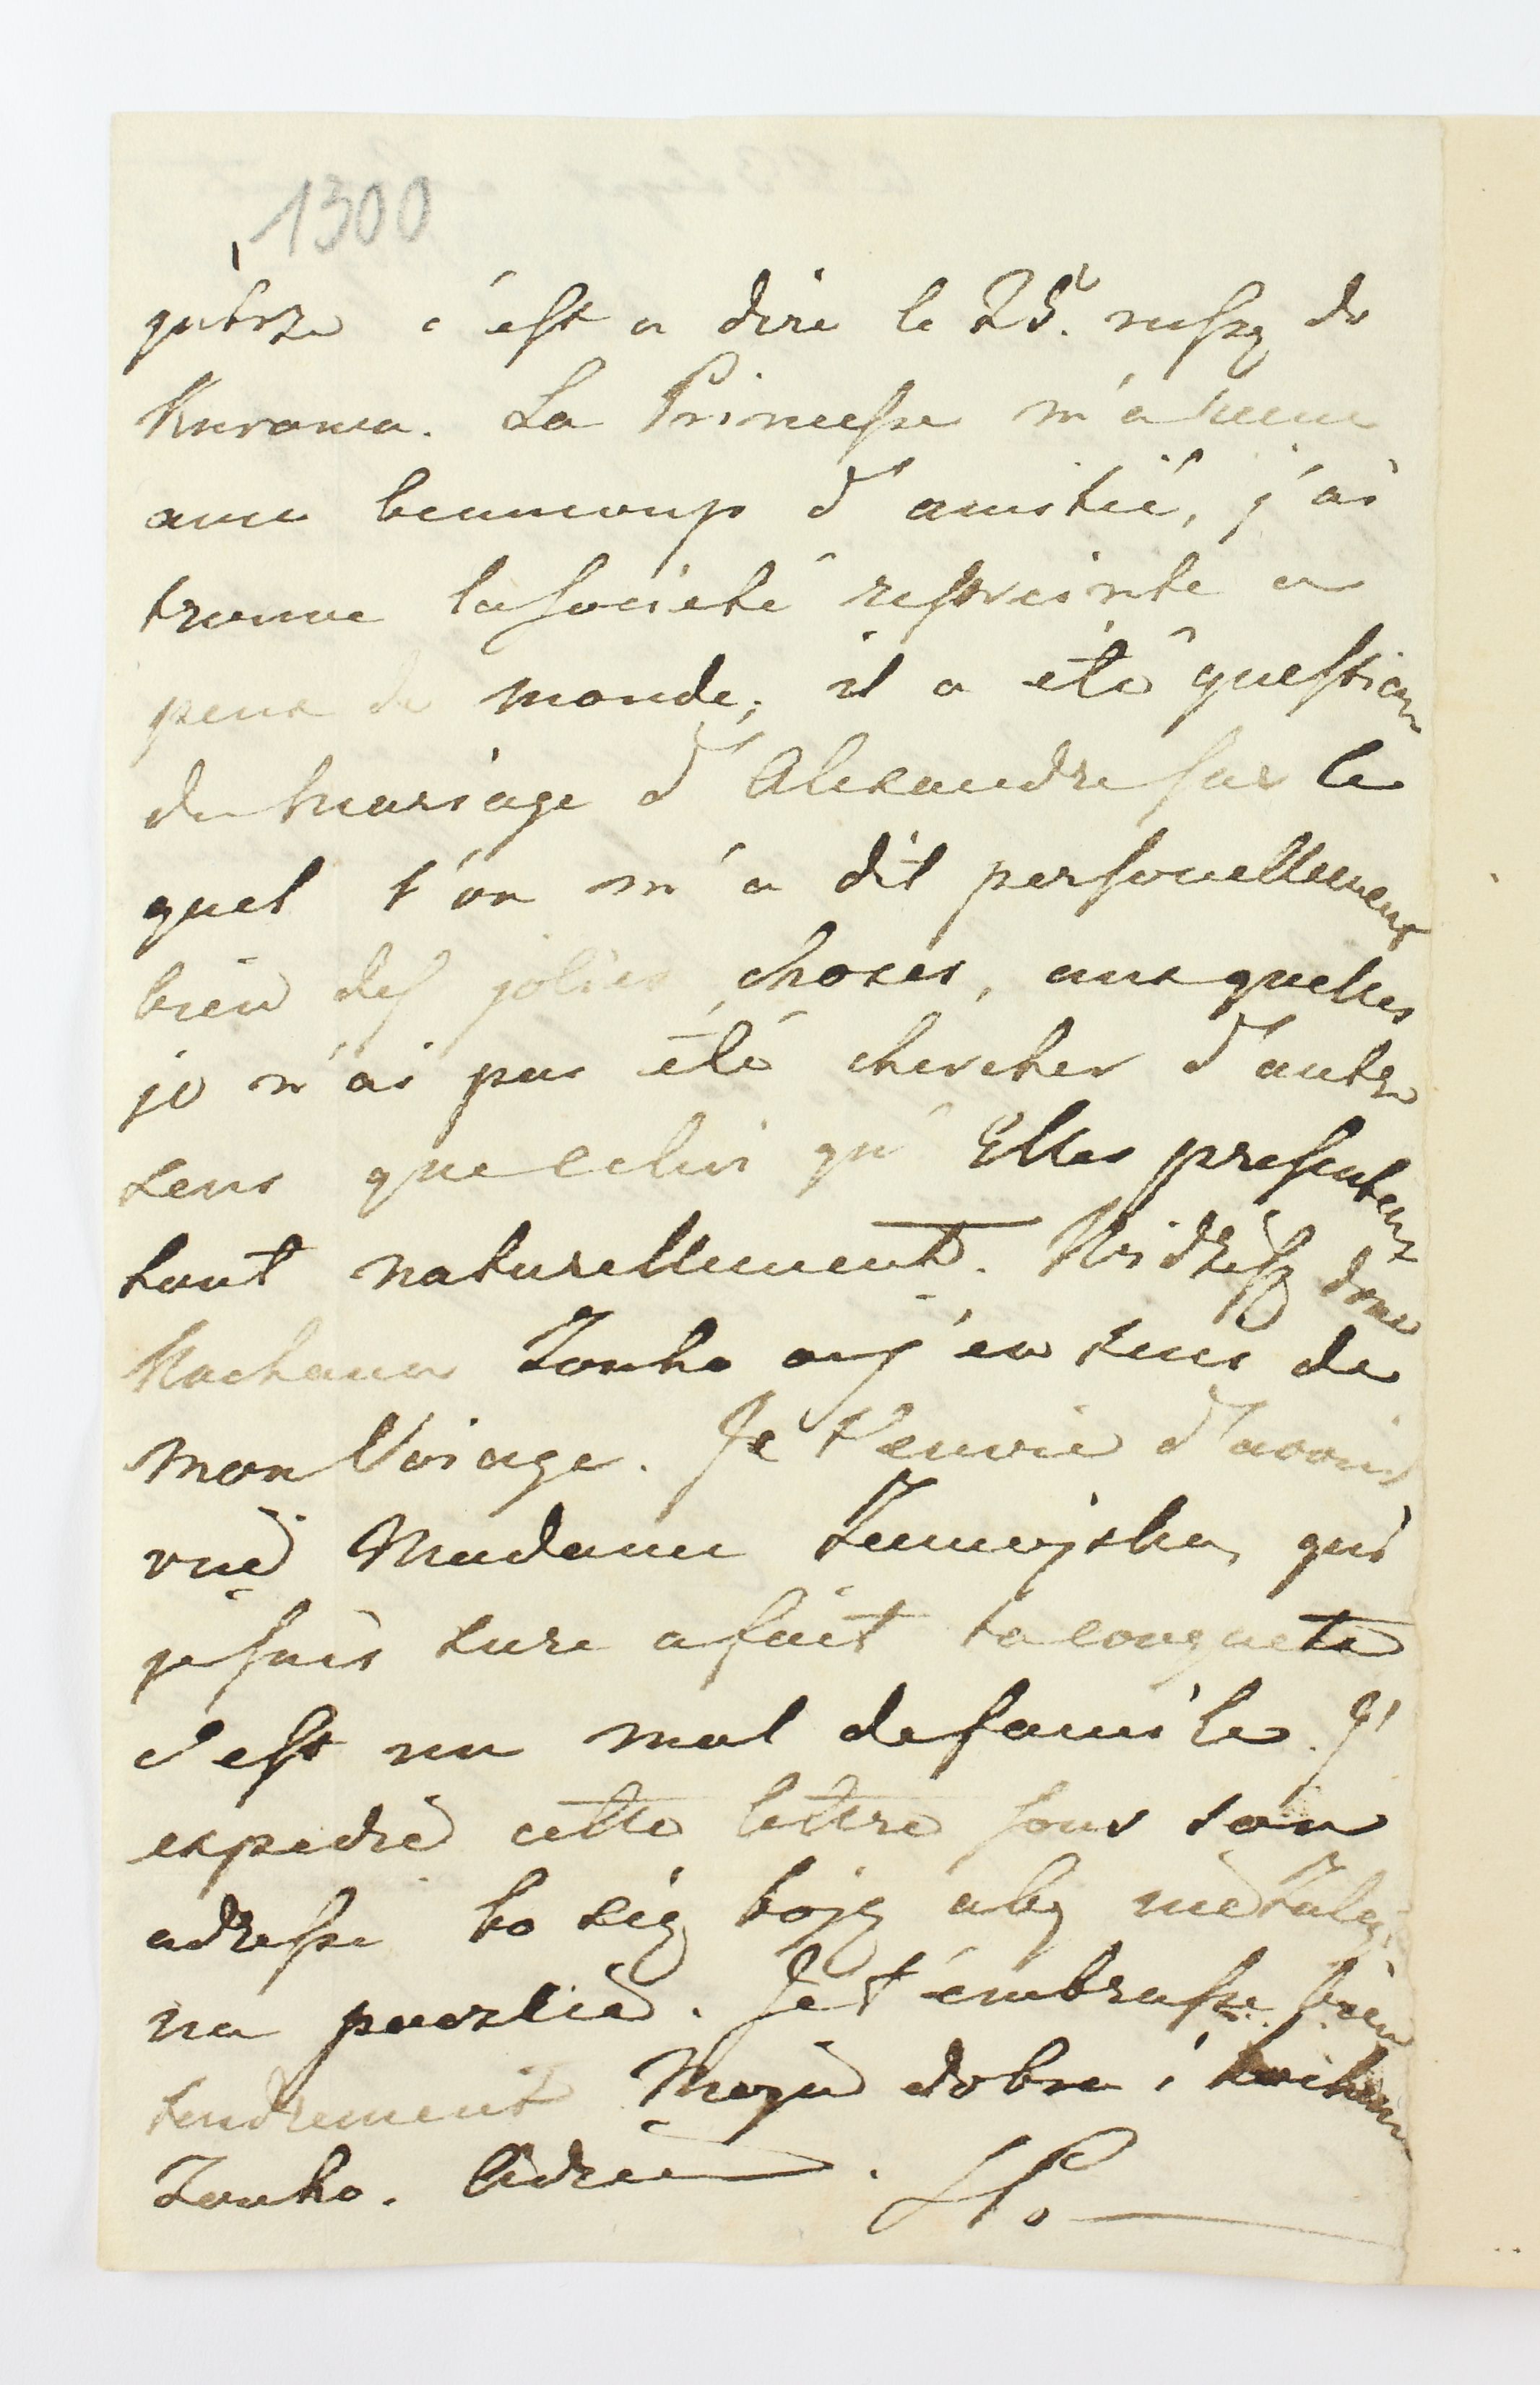 1300
jutrze c'est a dire le 25. ruszę do
Kurowa. La Princesse m'a recue
avec beaucoup d'amitié, j'ai
trouve la société restreinte a
peux de monde, il a été question
du mariage d'Alexandre sur le
quel l'on m'a dit personellement
bien des jolies choses, aux quelles
je n'ai pas été chercher d'autre
sens que celui qu'Elles presentent
tout naturellement. Widzisz donc
Kochana Zonko que j'en suis de
mon Voiage. Je t'envie d'avoir
vue Madame Zamojska, qui
je suis sure a fait ta conquete
c'est un mal de famile. J'
expedie cette lettre sous son
adresse bo się boję aby nie
na poczcie. Je t'embrasse bien
tendrement Moja dobra i kochana
Zonko. Adieu.